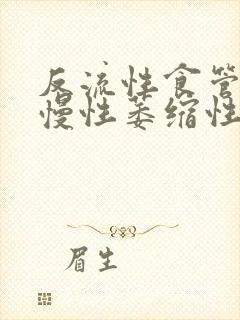 反流性食管
慢性萎缩性
眉生